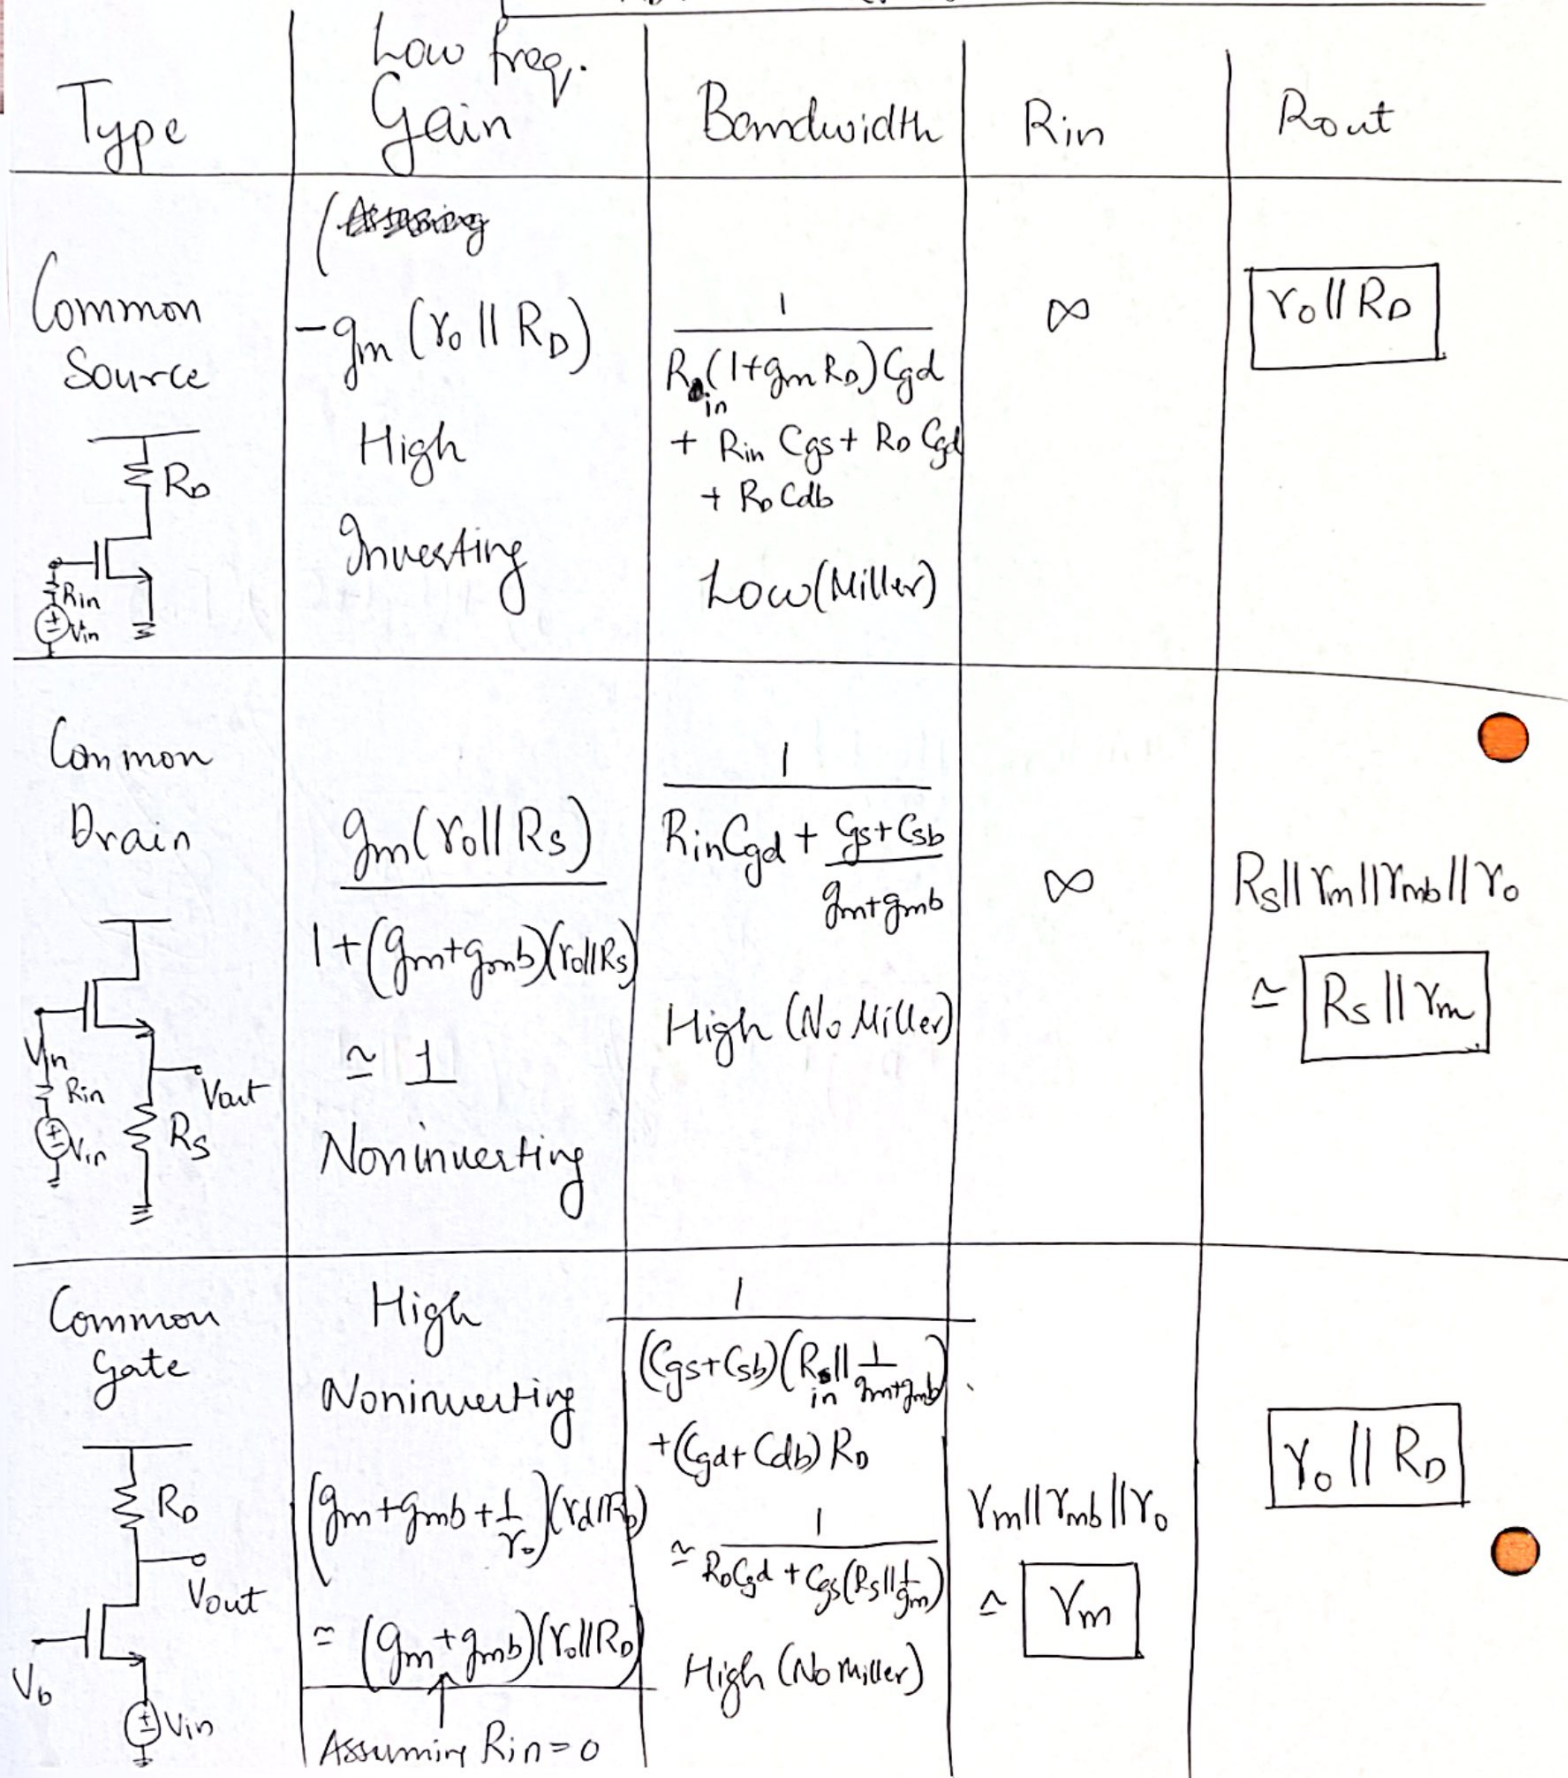 Type
Low freq.
Gain
Bandwidth
Rin
Rout
Common
Source
RD
Rin
Vin
(Assuming
-gm (ro || RD)
High
Inverting
1
Rin(1+gm RD) Cgd
+ Rin Cgs + RD Cgd
+ RD Cdb
Low (Miller)
∞
ro || RD
Common
Drain
Vin
Rin
Vin
Vout
RS
gm(ro||RS)
1+(gm+gmb)(ro||RS)
≃ 1
Noninverting
1
RinCgd + Cgs+Csb
gm+gmb
High (No Miller)
∞
RS||rm||rmb||ro
≃ RS || rm
Common
Gate
RD
Vout
Vb
Vin
High
Noninverting
(gm+gmb+1/ro)(ro||RD)
≃ (gm+gmb)(ro||RD)
Assuming Rin=0
1
(Cgs+Csb)(Rin||1/gm+gmb)
+(Cgd+Cdb) RD
≃ 1
RDCgd + Cgs(RS||1/gm)
High (No Miller)
rm||rmb||ro
≃ rm
ro || RD